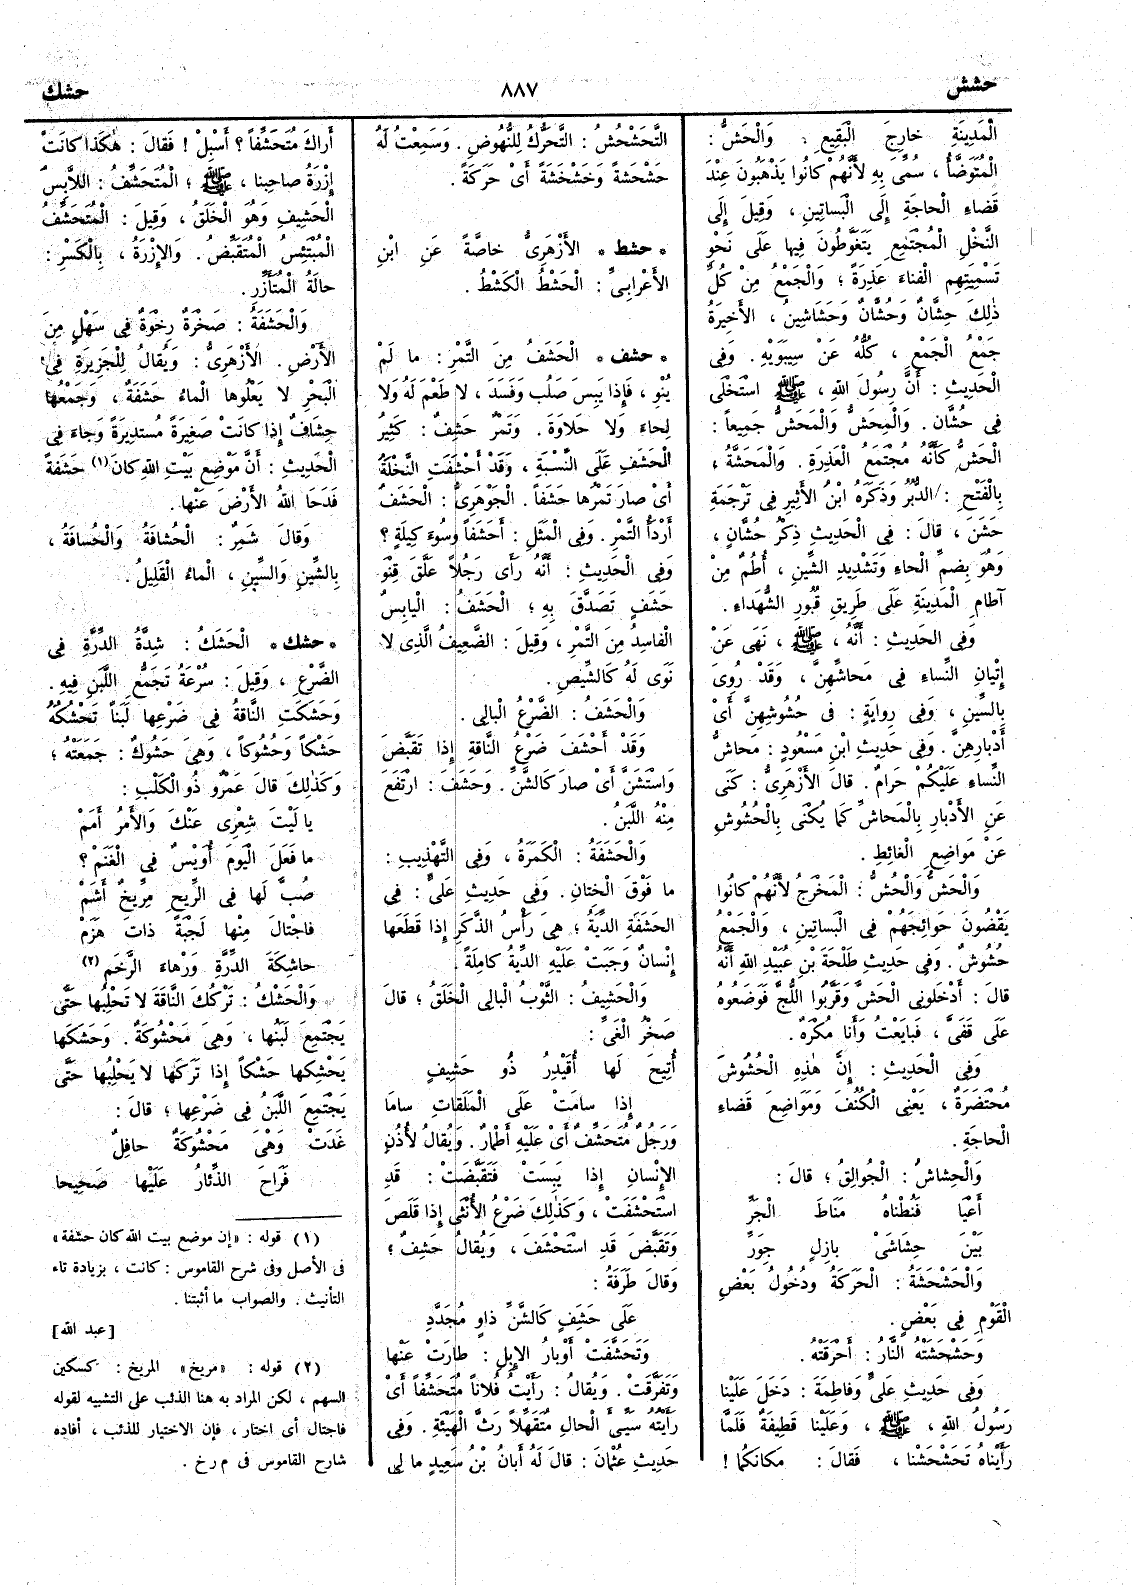 حشش
٨٨٧
حشك
الْمَدِينَةِ خارِجَ الْبَقِيعِ ، وَالْحَشُّ :
الْمُتَوَضَّأُ ، سُمِّىَ بِهِ لأَنَّهُمْ كانُوا يَذْهَبُونَ عِنْدَ
قَضاءِ الْحاجَةِ إِلَى الْبَساتِينِ ، وَقِيلَ إِلَى
النَّخْلِ الْمُجْتَمِعِ يَتَغَوَّطُونَ فِيها عَلَى نَحْوِ
تَسْمِيَتِهِمِ الْفِناءَ عَذِرَةً ؛ وَالْجَمْعُ مِنْ كُلِّ
ذٰلِكَ حِشَّانٌ وَحُشَّانٌ وَحَشَاشِينُ ، الأَخِيرَةُ
جَمْعُ الْجَمْعِ ، كُلُّهُ عَنْ سِيبَوَيْهِ . وَفِى
الْحَدِيثِ : أَنَّ رَسُولَ اللهِ ، ﷺ اسْتَخْلَى
فِى حُشَّانٍ . وَالْمِحَشُّ وَالْمَحَشُّ جَمِيعاً :
الْحَشُّ كَأَنَّهُ مُجْتَمَعُ الْعَذِرَةِ . وَالْمَحَشَّةُ ،
بِالْفَتْحِ : الدُّبُرُ وَذَكَرَهُ ابْنُ الأَثِيرِ فِى تَرْجَمَةِ
حَشَنَ ، قالَ : فِى الْحَدِيثِ ذِكْرُ حُشَّانٍ ،
وَهُوَ بِضَمِّ الْحاءِ وَتَشْدِيدِ الشِّينِ ، أُطُمٌ مِنْ
آطامِ الْمَدِينَةِ عَلَى طَرِيقِ قُبُورِ الشُّهَداءِ .
وَفِى الْحَدِيثِ : أَنَّهُ ، ﷺ ، نَهَى عَنْ
إِتْيانِ النِّساءِ فِى مَحاشِّهِنَّ ، وَقَدْ رُوِىَ
بِالسِّينِ ، وَفِى رِوايَةٍ : فى حُشُوشِهِنَّ أَىْ
أَدْبارِهِنَّ . وَفِى حَدِيثِ ابْنِ مَسْعُودٍ : مَحاشُّ
النِّساءِ عَلَيْكُمْ حَرامٌ . قالَ الأَزْهَرِىُّ : كَنَى
عَنِ الأَدْبارِ بِالْمَحاشِّ كَما يُكْنَى بِالْحُشُوشِ
عَنْ مَواضِعِ الْغائِطِ .
وَالْحَشُّ وَالْحُشُّ : الْمَخْرَجُ لأَنَّهُمْ كانُوا
يَقْضُونَ حَوائِجَهُمْ فِى الْبَساتِينِ ، وَالْجَمْعُ
حُشُوشٌ . وَفِى حَدِيثِ طَلْحَةَ بْنِ عُبَيْدِ اللهِ أَنَّهُ
قالَ : أَدْخَلُونِى الْحَشَّ وَقَرَّبُوا اللُّجَّ فَوَضَعُوهُ
عَلَى قَفَىَّ ، فَبايَعْتُ وَأَنا مُكْرَهٌ .
وَفِى الْحَدِيثِ : إِنَّ هٰذِهِ الْحُشُوشَ
مُحْتَضَرَةٌ ، يَعْنِى الْكُنُفَ وَمَواضِعَ قَضاءِ
الْحاجَةِ .
وَالْحِشاشُ : الْجُوالِقُ ؛ قالَ :
أَعْيَا فَنُطْناهُ مَناطَ الْجَرِّ
بَيْنَ حِشَاشَىْ بازِلٍ جِوَرِّ
وَالْحَشْحَشَةُ : الْحَرَكَةُ وَدُخُولُ بَعْضِ
الْقَوْمِ فِى بَعْضٍ .
وَحَشْحَشَتْهُ النَّارُ : أَحْرَقَتْهُ .
وَفِى حَدِيثِ عَلىٍّ وَفاطِمَةَ : دَخَلَ عَلَيْنا
رَسُولُ اللهِ ، ﷺ ، وَعَلَيْنا قَطِيفَةٌ فَلَمَّا
رَأَيْناهُ تَحَشْحَشْنا ، فَقالَ : مَكانَكُما !
التَّحَشْحُشُ : التَّحَرُّكُ لِلنُّهُوضِ . وَسَمِعْتُ لَهُ
حَشْحَشَةً وَخَشْخَشَةً أَىْ حَرَكَةً .
• حشط • الأَزْهَرِىُّ خاصَّةً عَنِ ابْنِ
الأَعْرابِىِّ : الْحَشْطُ الْكَشْطُ .
• حشف • الْحَشَفُ مِنَ التَّمْرِ : ما لَمْ
يُنْوِ ، فَإِذا يَبِسَ صَلُبَ وَفَسَدَ ، لا طَعْمَ لَهُ وَلا
لِحاءَ وَلا حَلاوَةَ . وَتَمْرٌ حَشِفٌ : كَثِيرُ
الْحَشَفِ عَلَى النِّسْبَةِ ، وَقَدْ أَحْشَفَتِ النَّخْلَةُ
أَىْ صارَ تَمْرُها حَشَفاً . الْجَوْهَرِىُّ : الْحَشَفُ
أَرْدَأُ التَّمْرِ . وَفِى الْمَثَلِ : أَحَشَفاً وَسُوءَ كِيلَةٍ ؟
وَفِى الْحَدِيثِ : أَنَّهُ رَأَى رَجُلاً عَلَّقَ قِنْوَ
حَشَفٍ تَصَدَّقَ بِهِ ؛ الْحَشَفُ : الْيابِسُ
الْفاسِدُ مِنَ التَّمْرِ ، وَقِيلَ : الضَّعِيفُ الَّذِى لا
نَوَى لَهُ كَالشِّيصِ .
وَالْحَشَفُ : الضَّرْعُ الْبالِى .
وَقَدْ أَحْشَفَ ضَرْعُ النَّاقَةِ إِذا تَقَبَّضَ
وَاسْتَشَنَّ أَىْ صارَ كَالشَّنِّ . وَحَشَفَ : ارْتَفَعَ
مِنْهُ اللَّبَنُ .
وَالْحَشَفَةُ : الْكَمَرَةُ ، وَفِى التَّهْذِيبِ :
ما فَوْقَ الْخِتانِ . وَفِى حَدِيثِ عَلىٍّ : فِى
الْحَشَفَةِ الدِّيَةُ ؛ هِىَ رَأْسُ الذَّكَرِ إِذا قَطَعَها
إِنْسانٌ وَجَبَتْ عَلَيْهِ الدِّيَةُ كامِلَةً .
وَالْحَشِيفُ : الثَّوْبُ الْبالِى الْخَلَقُ ؛ قالَ
صَخْرُ الْغَىِّ :
أُتِيحَ لَها أُقَيْدِرُ ذُو حَشِيفٍ
إِذا سامَتْ عَلَى الْمَلَقَاتِ سامَا
وَرَجُلٌ مُتَحَشِّفٌ أَىْ عَلَيْهِ أَطْمارٌ . وَيُقالُ لأُذُنِ
الإِنْسانِ إِذا يَبِسَتْ فَتَقَبَّضَتْ : قَدِ
اسْتَحْشَفَتْ ، وَكَذٰلِكَ ضَرْعُ الأُنْثَى إِذا قَلَصَ
وَتَقَبَّضَ قَدِ اسْتَحْشَفَ ، وَيُقالُ حَشِفٌ ؛
وَقالَ طَرَفَةُ :
عَلَى حَشَفٍ كَالشَّنِّ ذاوٍ مُجَدَّدِ
وَتَحَشَّفَتْ أَوْبارُ الإِبِلِ : طارَتْ عَنْها
وَتَفَرَّقَتْ . وَيُقالُ : رَأَيْتُ فُلاناً مُتَحَشِّفاً أَىْ
رَأَيْتُهُ سَيِّىَ الْحالِ مُتَقَهِّلاً رَثَّ الْهَيْئَةِ . وَفِى
حَدِيثِ عُثْمانَ : قالَ لَهُ أَبانُ بْنُ سَعِيدٍ ما لِى
أَراكَ مُتَحَشِّفاً ؟ أَسْبِلْ ! فَقالَ : هٰكَذا كانَتْ
إِزْرَةُ صاحِبِنا ، ﷺ ؛ الْمُتَحَشِّفُ : اللَّابِسُ
الْحَشِيفِ وَهُوَ الْخَلَقُ ، وَقِيلَ : الْمُتَحَشِّفُ
الْمُبْتَئِسُ الْمُتَقَبِّضُ . وَالإِزْرَةُ ، بِالْكَسْرِ :
حالَةُ الْمُتَأَزِّرِ .
وَالْحَشَفَةُ : صَخْرَةٌ رِخْوَةٌ فِى سَهْلٍ مِنَ
الأَرْضِ . الأَزْهَرِىُّ : وَيُقالُ لِلْجَزِيرَةِ فِى
الْبَحْرِ لا يَعْلُوها الْماءُ حَشَفَةٌ ، وَجَمْعُها
حِشافٌ إِذا كانَتْ صَغِيرَةً مُستدِيرَةً وَجاءَ فِى
الْحَدِيثِ : أَنَّ مَوْضِعَ بَيْتِ اللهِ كانَ (١) حَشَفَةً
فَدَحَا اللهُ الأَرْضَ عَنْها .
وَقالَ شَمِرٌ : الْحُشافَةُ وَالْحُسافَةُ ،
بِالشِّينِ وَالسِّينِ ، الْماءُ الْقَلِيلُ .
• حشك • الْحَشَكُ : شِدَّةُ الدِّرَّةِ فِى
الضَّرْعِ ، وَقِيلَ : سُرْعَةُ تَجَمُّعِ اللَّبَنِ فِيهِ .
وَحَشَكَتِ النَّاقَةُ فِى ضَرْعِها لَبَناً تَحْشِكُهُ
حَشْكاً وَحُشُوكاً ، وَهِىَ حَشُوكٌ : جَمَعَتْهُ ؛
وَكَذٰلِكَ قالَ عَمْرٌو ذُو الْكَلْبِ :
يا لَيْتَ شِعْرِى عَنْكَ وَالأَمْرُ أَمَمْ
ما فَعَلَ الْيَومَ أُوَيْسٌ فِى الْغَنَمْ ؟
صُبَّ لَها فِى الرِّيحِ مِرِّيخٌ أَشَمّْ
فاجْتالَ مِنْها لَجْبَةً ذاتَ هَزَمْ
حاشِكَةَ الدِّرَّةِ وَرْهاءَ الرَّخَمِ (٢)
وَالْحَشْكُ : تَرْكُكَ النَّاقَةَ لا تَحْلِبُها حَتَّى
يَجْتَمِعَ لَبَنُها ، وَهِىَ مَحْشُوكَةٌ . وَحَشَكَها
يَحْشِكُها حَشْكاً إِذا تَرَكَها لا يَحْلِبُها حَتَّى
يَجْتَمِعَ اللَّبَنُ فِى ضَرْعِها ؛ قالَ :
غَدَتْ وَهْىَ مَحْشُوكَةٌ حافِلٌ
فَرَاحَ الذِّئارُ عَلَيْها صَحِيحا
(١) قوله : «إن موضع بيت الله كان حشفة»
فى الأصل وفى شرح القاموس : كانت ، بزيادة تاء
التأنيث . والصواب ما أثبتنا .
[عبد الله]
(٢) قوله : «مريخ» المريخ : كسكين
السهم ، لكن المراد به هنا الذئب على التشبيه لقوله
فاجتال أى اختار ، فإن الاختيار للذئب ، أفاده
شارح القاموس فى م ر خ .